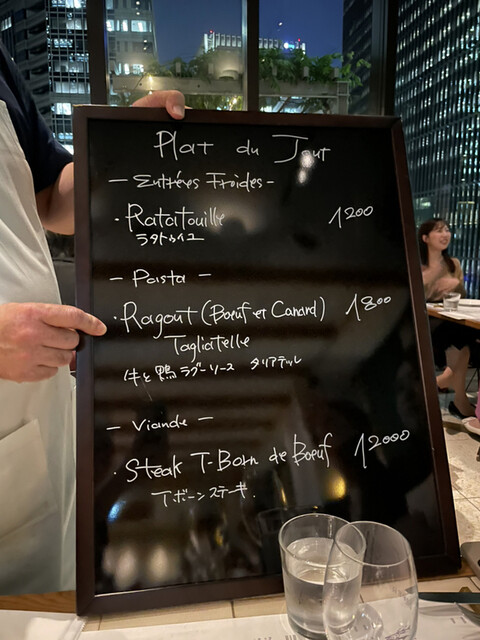 Plat du Jour
— Entrées Froides —
・Ratatouille 1200
ラタトゥイユ
— Pasta —
・Ragout (Boeuf et Canard) 1800
Tagliatelle
牛と鴨 ラグーソース タリアテッレ
— Viande —
・Steak T-Born de Boeuf 12000
Tボーンステーキ.